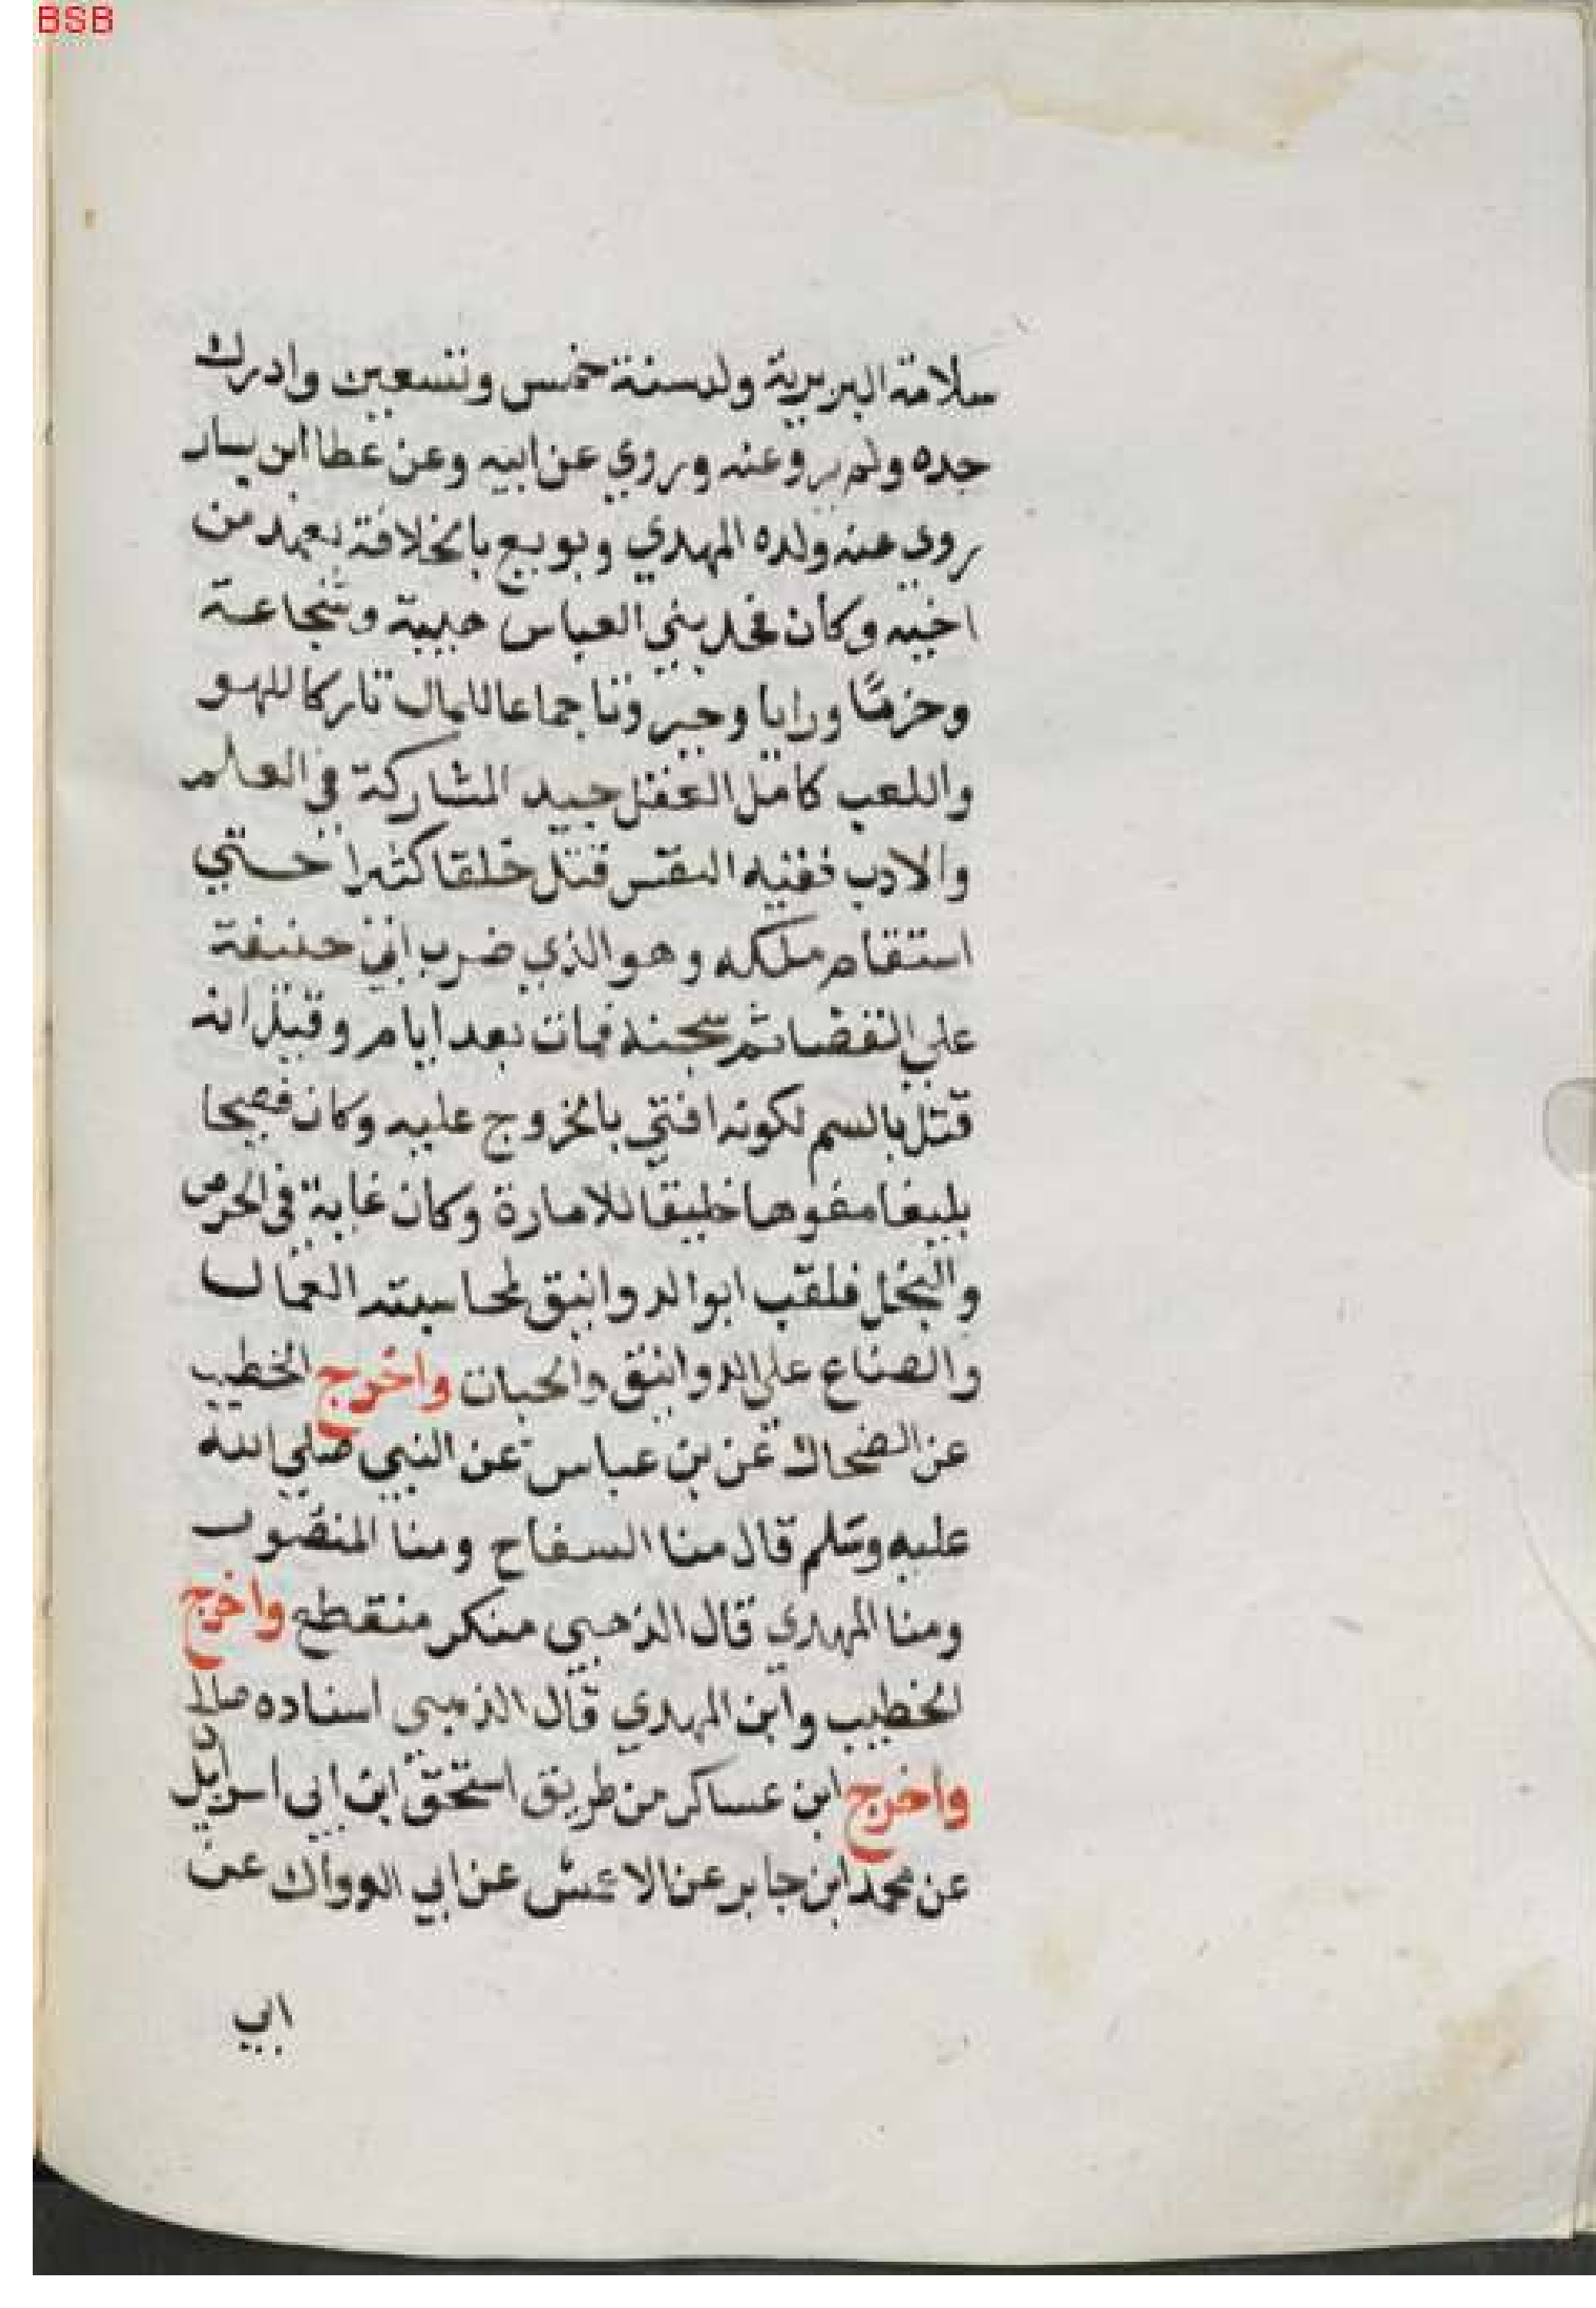 BSB
سلامة البربرية ولد سنة خمس وتسعين وادرك
جده ولم يرو عنه وروي عن ابيه وعن عطا ابن يسار
روي عنه ولده المهدي وبويع بالخلافة بعهد من
اخيه وكان فحل بني العباس هيبة وشجاعة
وحزمًا ورايا وجبروتا جماعا للمال تاركا للهو
واللعب كامل العقل جيد المشاركة في العلم
والادب فقيه النفس قتل خلقا كثيرا حتي
استقام ملكه وهو الذي ضرب ابي حنيفة
علي القضا ثم سجنه فمات بعد ايام وقيل انه
قتل بالسم لكونه افتي بالخروج عليه وكان فصيحا
بليغا مفوها خليقا للامارة وكان غاية في الحرص
والبخل فلقب ابو الدوانيق لمحاسبته العمال
والصناع علي الدوانيق والحبات واخرج الخطيب
عن الضحاك عن بن عباس عن النبي صلي الله
عليه وسلم قال منا السفاح ومنا المنصور
ومنا المهدي قال الذهبي منكر منقطع واخرج
الخطيب وابن المهدي قال الذهبي اسناده صالح
واخرج ابن عساكر من طريق اسحق ابن ابي اسرائيل
عن محمد ابن جابر عن الاعمش عن ابي الوواك عن
ابي